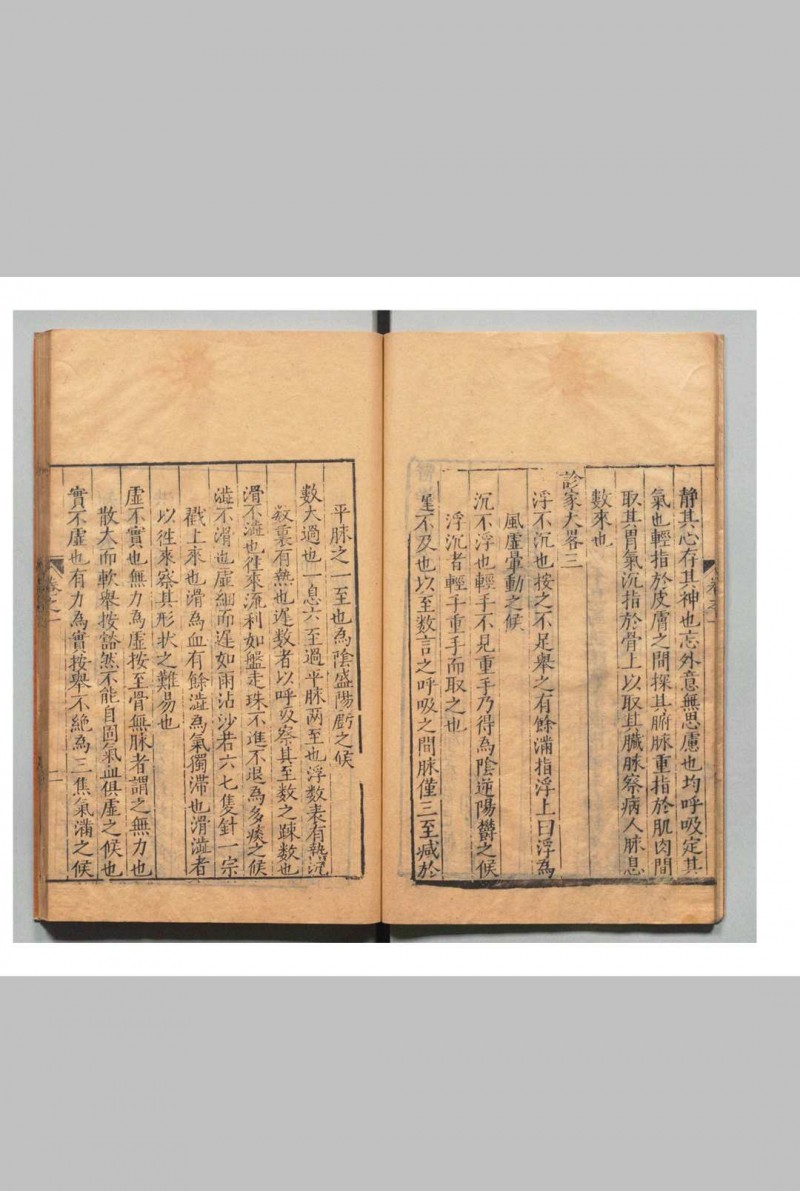 靜其心存其神也忘外意無思慮也均呼吸定其
氣也輕指於皮膚之間探其腑脉重指於肌肉間
取其胃氣沉指於骨上以取其臟脉察病人脉息
數來也
診家大畧三
浮不沉也按之不足舉之有餘滿指浮上曰浮為
風虛暈動之候
沉不浮也輕手不見重手乃得為陰逆陽鬱之候
浮沉者輕手重手而取之也
不及也以至數言之呼吸之間脉僅三至減於
平脉之一至也為陰盛陽虧之候
數大過也一息六至過平脉两至也浮數表有熱沉
數裏有熱也遲數者以呼吸察其至數之疎數也
滑不澁也徃來流利如盤走珠不進不退為多痰之候
澁不滑也虛細而遲如雨沾沙者六七隻針一宗
戳上来也滑為血有餘澁為氣獨滯也滑澁者
以徃来察其形状之難易也
虛不實也無力為虛按至骨無脉者謂之無力也
散大而軟舉按豁然不能自固氣血俱虛之候也
實不虛也有力為實按舉不絶為三焦氣滿之候
卷之一
二